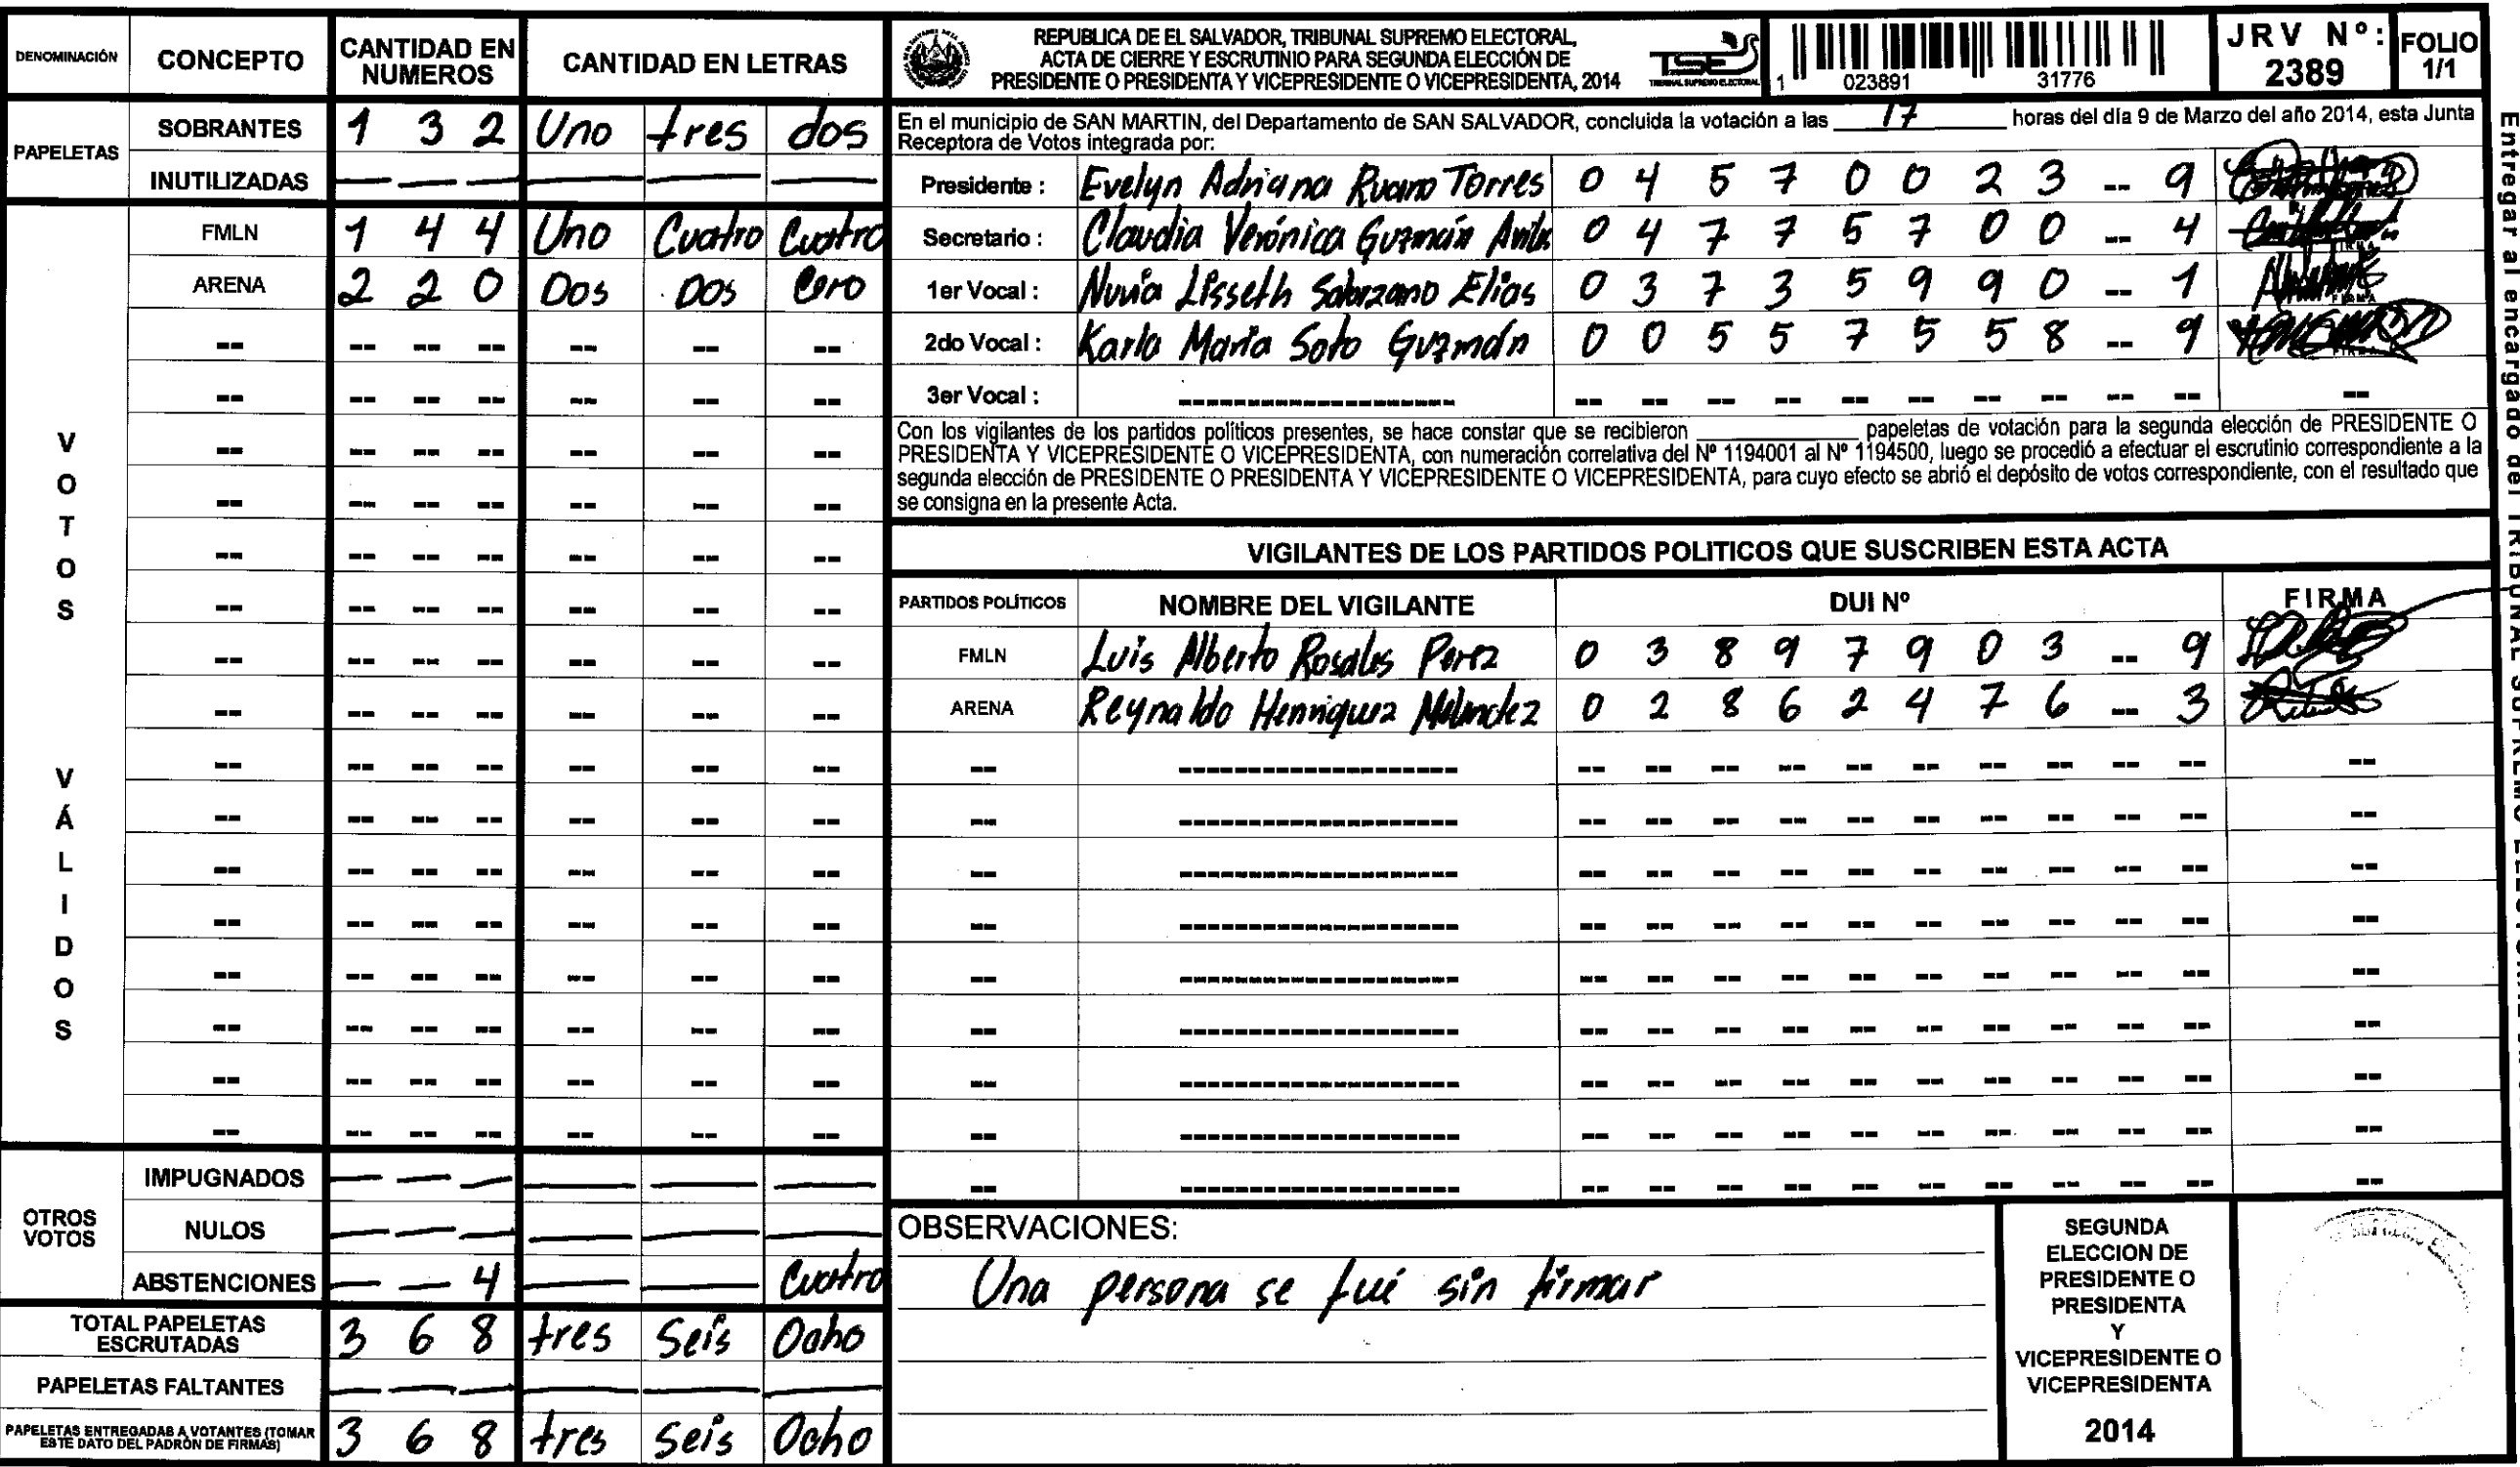 DENOMINACIÓN CONCEPTO CANTIDAD EN NUMEROS CANTIDAD EN LETRAS
PAPELETAS
SOBRANTES 1 3 2 Uno tres dos
INUTILIZADAS — — — — — —
VOTOS VÁLIDOS
FMLN 1 4 4 Uno Cuatro Cuatro
ARENA 2 2 0 Dos Dos Cero
OTROS VOTOS
IMPUGNADOS — — — — — —
NULOS — — — — — —
ABSTENCIONES — — 4 — — Cuatro
TOTAL PAPELETAS ESCRUTADAS 3 6 8 tres Seis Ocho
PAPELETAS FALTANTES — — — — — —
PAPELETAS ENTREGADAS A VOTANTES (TOMAR ESTE DATO DEL PADRÓN DE FIRMAS) 3 6 8 tres Seis Ocho
REPUBLICA DE EL SALVADOR, TRIBUNAL SUPREMO ELECTORAL,
ACTA DE CIERRE Y ESCRUTINIO PARA SEGUNDA ELECCIÓN DE
PRESIDENTE O PRESIDENTA Y VICEPRESIDENTE O VICEPRESIDENTA, 2014
TSE
TRIBUNAL SUPREMO ELECTORAL
1 023891 31776
JRV Nº: 2389
FOLIO 1/1
En el municipio de SAN MARTIN, del Departamento de SAN SALVADOR, concluida la votación a las 17 horas del día 9 de Marzo del año 2014, esta Junta
Receptora de Votos integrada por:
Presidente : Evelyn Adriana Ruano Torres 0 4 5 7 0 0 2 3 -- 9
Secretario : Claudia Verónica Guzmán 0 4 7 7 5 7 0 0 -- 4
1er Vocal : Nuvia Lisseth Solorzano Elias 0 3 7 3 5 9 9 0 -- 1
2do Vocal : Karla Maria Soto Guzmán 0 0 5 5 7 5 5 8 -- 9
3er Vocal :
Con los vigilantes de los partidos políticos presentes, se hace constar que se recibieron ________ papeletas de votación para la segunda elección de PRESIDENTE O
PRESIDENTA Y VICEPRESIDENTE O VICEPRESIDENTA, con numeración correlativa del Nº 1194001 al Nº 1194500, luego se procedió a efectuar el escrutinio correspondiente a la
segunda elección de PRESIDENTE O PRESIDENTA Y VICEPRESIDENTE O VICEPRESIDENTA, para cuyo efecto se abrió el depósito de votos correspondiente, con el resultado que
se consigna en la presente Acta.
VIGILANTES DE LOS PARTIDOS POLITICOS QUE SUSCRIBEN ESTA ACTA
PARTIDOS POLÍTICOS NOMBRE DEL VIGILANTE DUI Nº FIRMA
FMLN Luis Alberto Rosales Perez 0 3 8 9 7 9 0 3 -- 9
ARENA Reynaldo Henriquez Melendez 0 2 8 6 2 4 7 6 -- 3
OBSERVACIONES:
Una persona se fué sin firmar
SEGUNDA
ELECCION DE
PRESIDENTE O
PRESIDENTA
Y
VICEPRESIDENTE O
VICEPRESIDENTA
2014
Entregar al encargado del TRIBUNAL SUPREMO